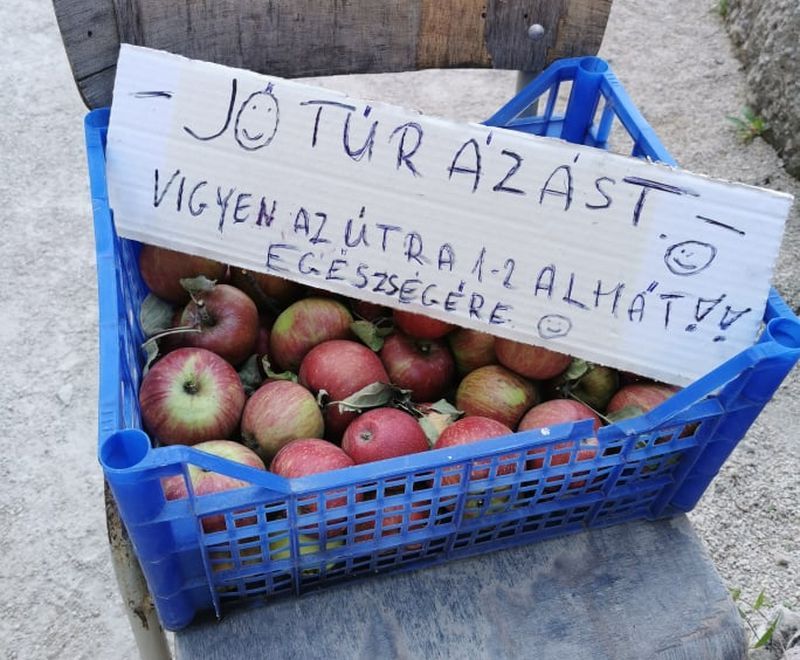 - JÓ TÚRÁZÁST. -
VIGYEN AZ ÚTRA 1-2 ALMÁT!!
EGÉSZSÉGÉRE.